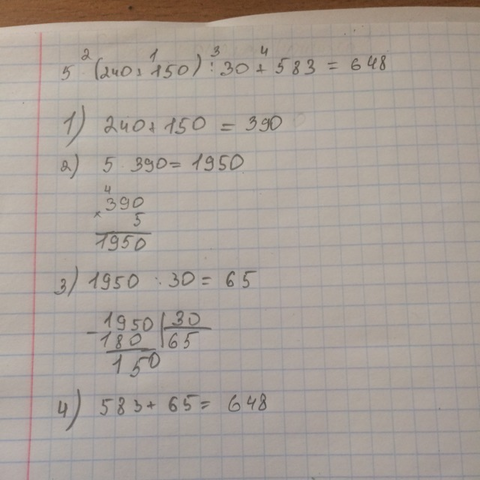 2 1 3 4
5 (240+150) : 30 + 583 = 648
1) 240+150 = 390
2) 5 · 390 = 1950
4
390
× 5
1950
3) 1950 : 30 = 65
- 1950 | 30
180 | 65
150
4) 583 + 65 = 648